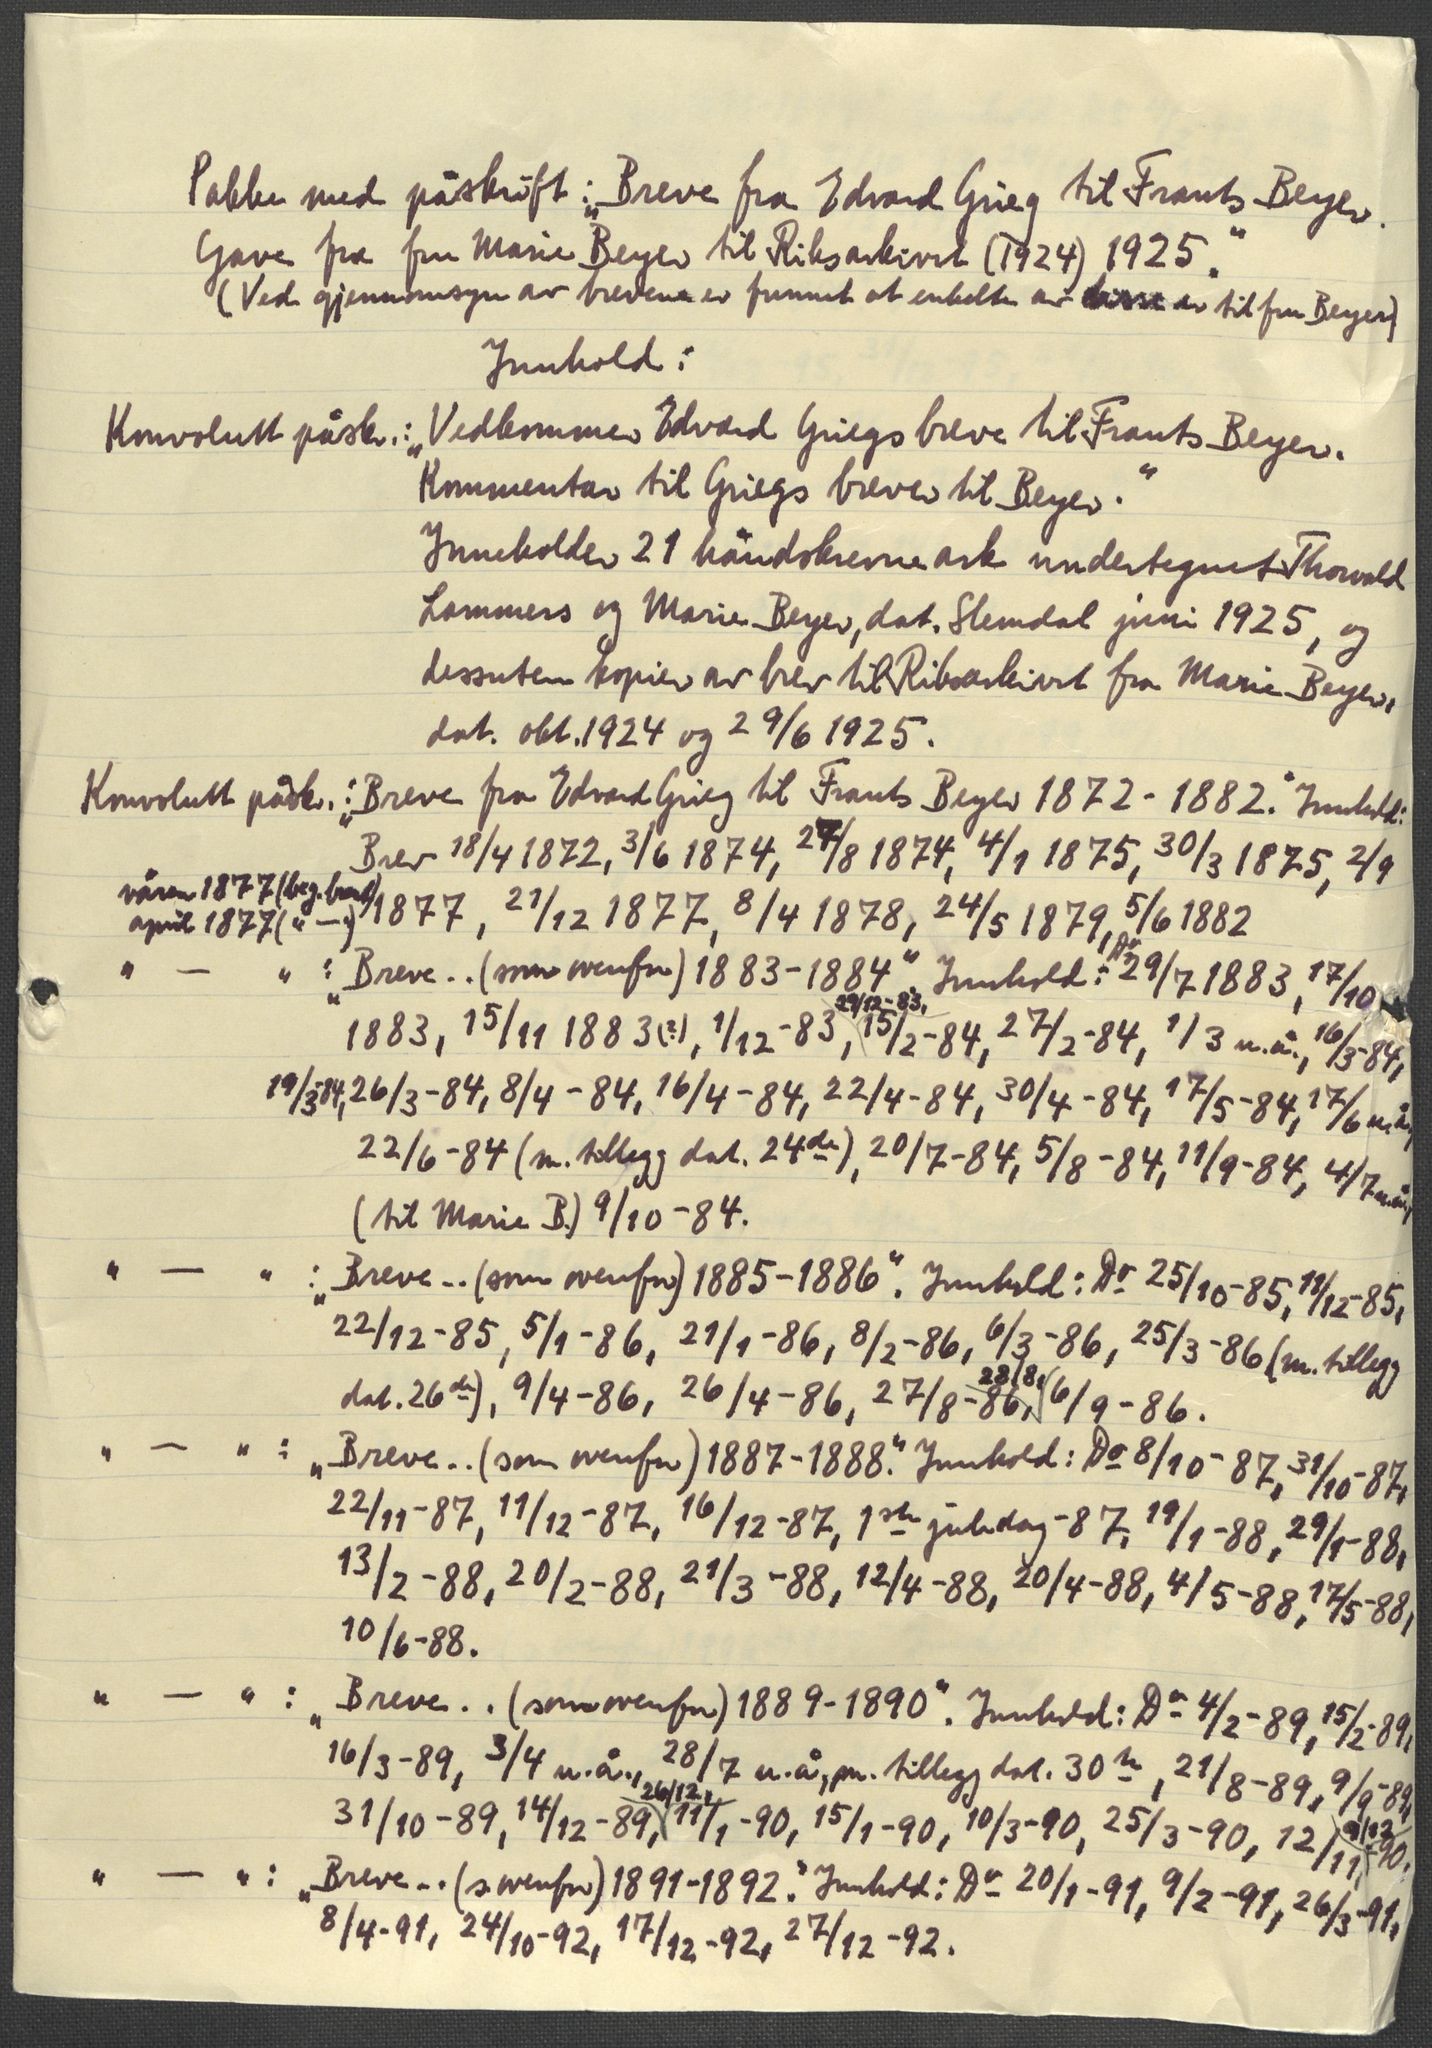 Pakke med påskrift: „Breve fra Edvard Grieg til Frants Beyer.
Gave fra fru Marie Beyer til Riksarkivet (1924) 1925."
(Ved gjennomsyn av brevene er funnet at enkelte av disse er til fru Beyer)
Innhold:
Konvolutt påskr.: „Vedkommer Edvard Griegs breve til Frants Beyer.
Kommentar til Griegs brever til Beyer."
Inneholder 21 håndskrevne ark undertegnet Thorvald
Lammers og Marie Beyer, dat. Slemdal juni 1925, og
dessuten kopier av brev til Riksarkivet fra Marie Beyer,
dat. okt. 1924 og 29/6 1925.
Konvolutt påskr.: „Breve fra Edvard Grieg til Frants Beyer 1872-1882." Innhold:
Brev 18/4 1872, 3/6 1874, 27/8 1874, 4/1 1875, 30/3 1875, 2/9
våren 1877 (beg. bort)
april 1877 (" — ") 1877, 21/12 1877, 8/4 1878, 24/5 1879, 5/6 1882
" — " : „Breve .. (som ovenfor) 1883-1884". Innhold: Do 29/7 1883, 17/10
1883, 15/11 1883 (?), 1/12-83, 29/12-83, 15/2-84, 27/2-84, 1/3 u.å., 16/3-84,
19/3-84, 26/3-84, 8/4-84, 16/4-84, 22/4-84, 30/4-84, 17/5-84, 17/6 u.å.,
22/6-84 (m. tillegg dat. 24de), 20/7-84, 5/8-84, 11/9-84, 4/7 u.å.,
(til Marie B.) 9/10-84.
" — " : „Breve .. (som ovenfor) 1885-1886". Innhold: Do 25/10-85, 11/12-85,
22/12-85, 5/1-86, 21/1-86, 8/2-86, 6/3-86, 25/3-86 (m. tillegg
dat. 26de), 9/4-86, 26/4-86, 27/8-86, 28/8, 6/9-86.
" — " : „Breve .. (som ovenfor) 1887-1888." Innhold: Do 8/10-87, 31/10-87,
22/11-87, 11/12-87, 16/12-87, 1ste juledag-87, 19/1-88, 29/1-88,
13/2-88, 20/2-88, 21/3-88, 12/4-88, 20/4-88, 4/5-88, 17/5-88,
10/6-88.
" — " : „Breve .. (som ovenfor) 1889-1890". Innhold: Do 4/2-89, 15/2-89,
16/3-89, 3/4 u.å., 28/7 u.å., m. tillegg dat. 30te, 21/8-89, 9/9-89,
31/10-89, 14/12-89, 26/12, 11/1-90, 15/1-90, 10/3-90, 25/3-90, 12/11, 9/12-90.
" — " : „Breve .. (s. ovenfor) 1891-1892." Innhold: Do 20/1-91, 9/2-91, 26/3-91,
8/4-91, 24/10-92, 17/12-92, 27/12-92.